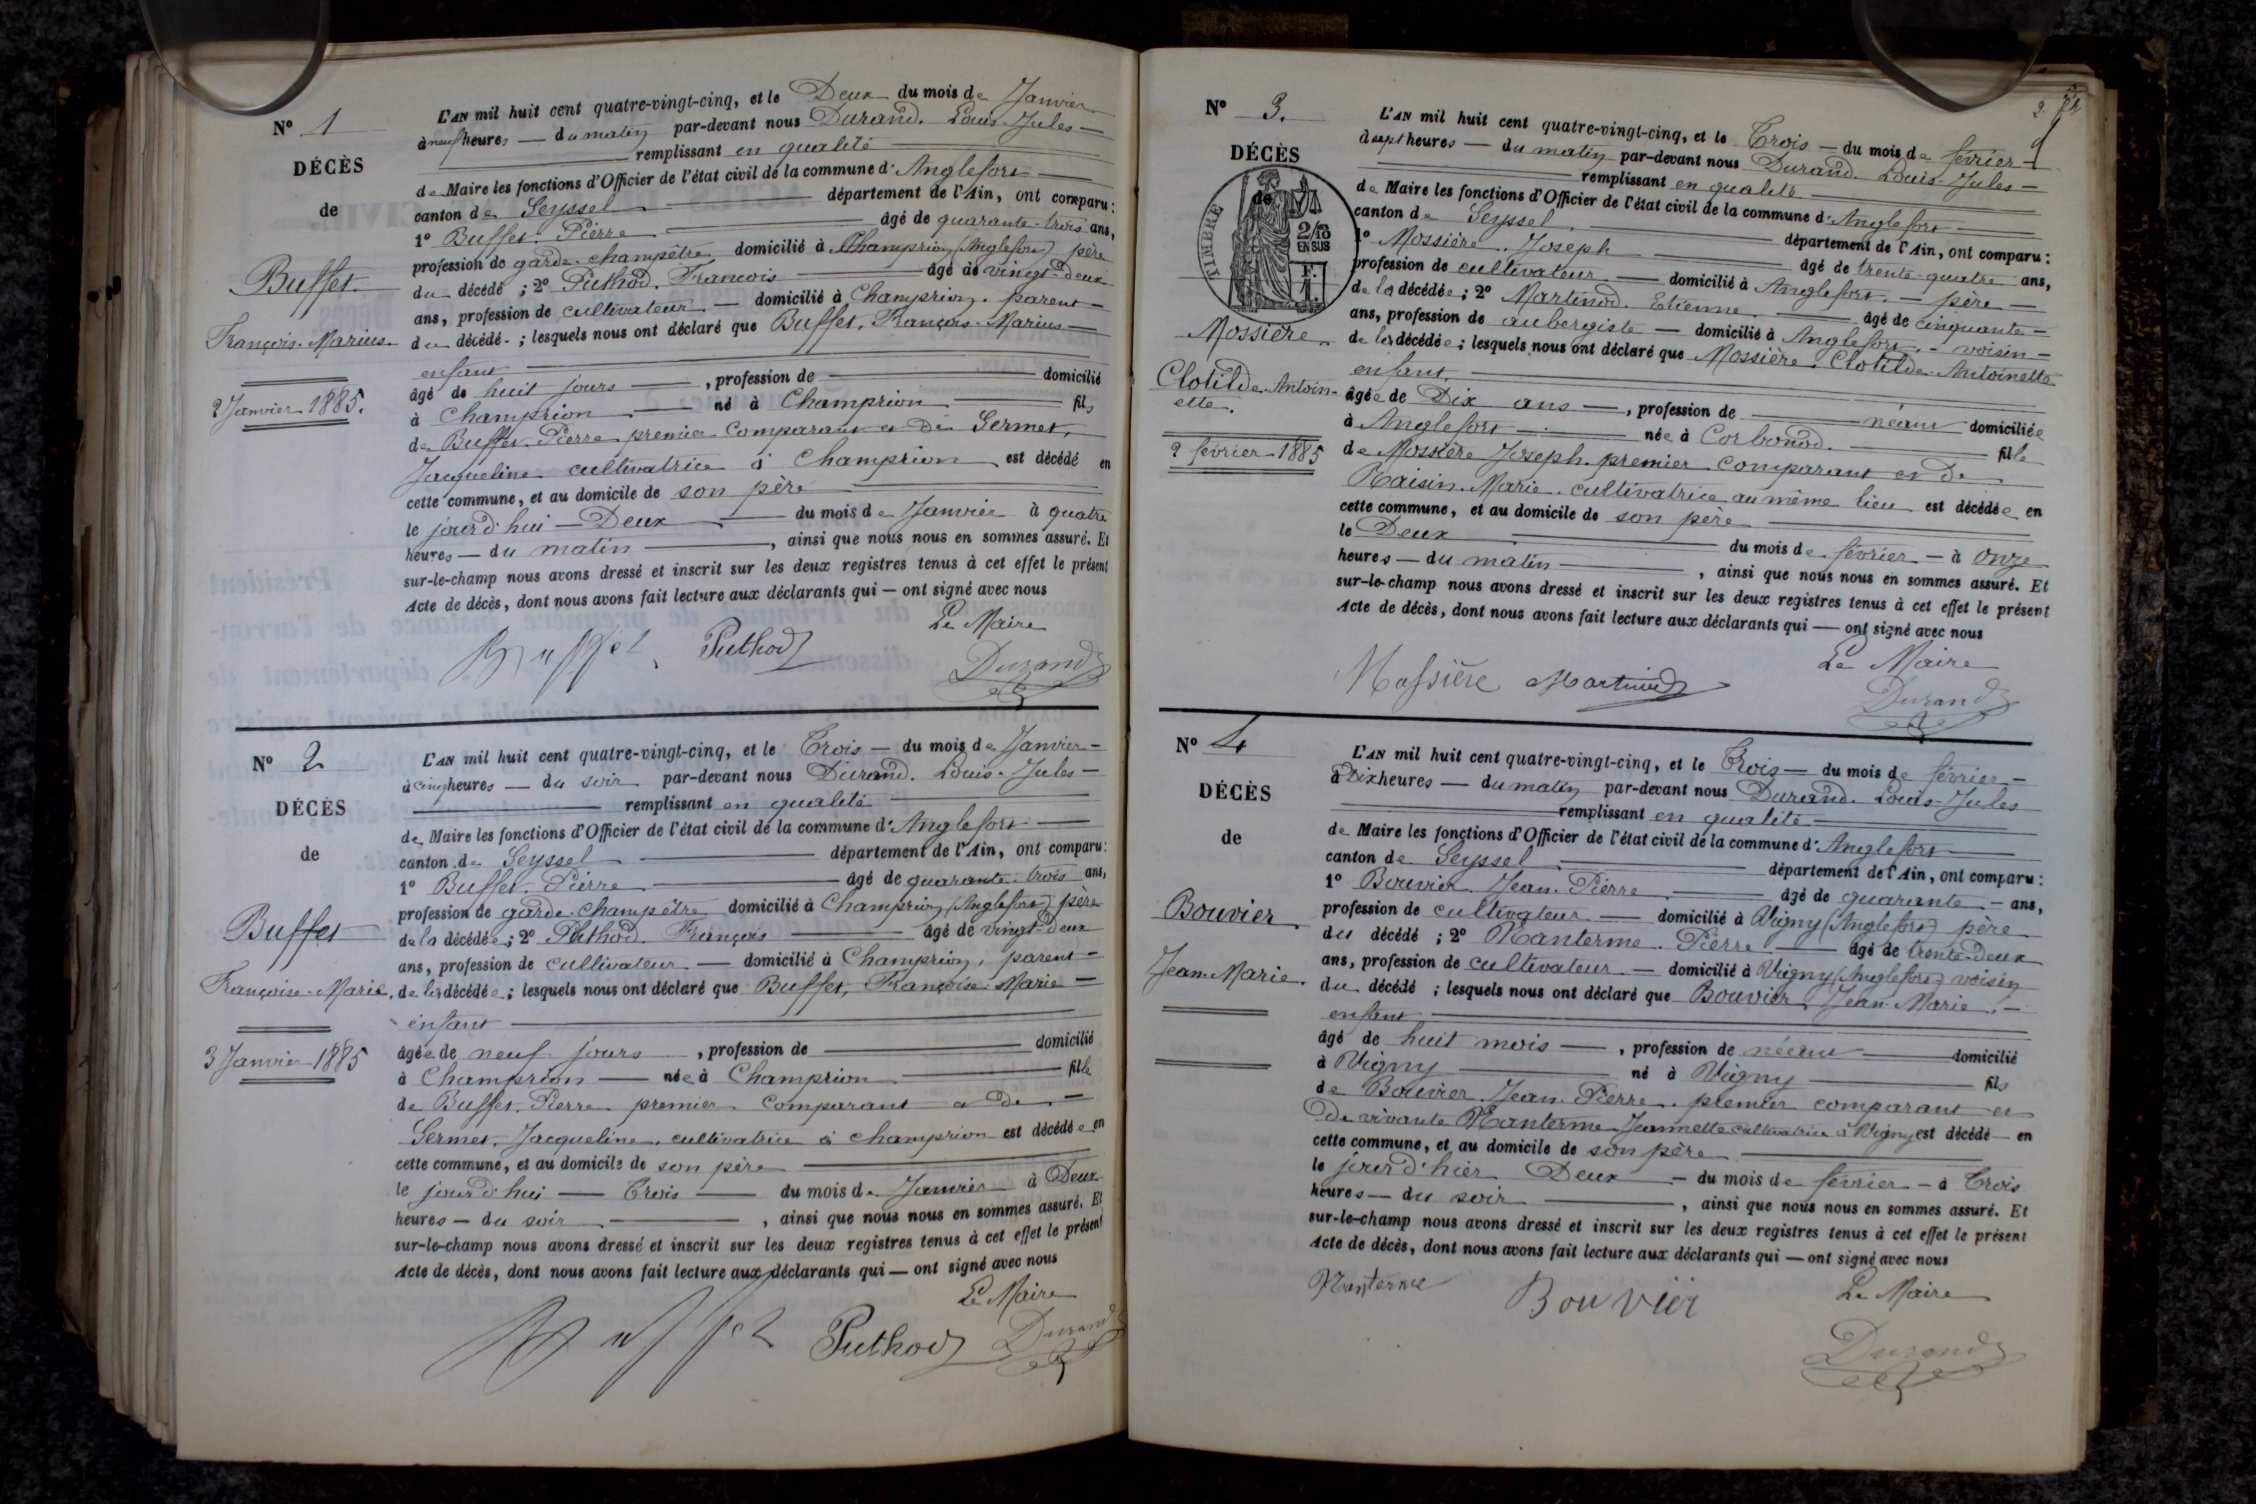 N° 1
DÉCÈS
de
Buffet
François-Marius
2 Janvier 1885.
L'AN mil huit cent quatre-vingt-cinq, et le Deux du mois de Janvier
à neuf heures — du matin par-devant nous Durand. Louis-Jules —
remplissant en qualité
de Maire les fonctions d'Officier de l'état civil de la commune d'Anglefort
canton de Seyssel département de l'Ain, ont comparu:
1° Buffet. Pierre âgé de quarante-trois ans,
profession de garde-champêtre domicilié à Champrion (Anglefort) père
du décédé ; 2° Puthod. François âgé de vingt-deux
ans, profession de cultivateur — domicilié à Champrion. parent —
du décédé ; lesquels nous ont déclaré que Buffet, François-Marius —
enfant
âgé de huit jours , profession de domicilié
à Champrion né à Champrion fils
de Buffet Pierre premier comparant et de Sermet,
Jacqueline cultivatrice à Champrion est décédé en
cette commune, et au domicile de son père
le jourd'hui — Deux du mois de Janvier à quatre
heures — du matin , ainsi que nous nous en sommes assuré. Et
sur-le-champ nous avons dressé et inscrit sur les deux registres tenus à cet effet le présent
Acte de décès, dont nous avons fait lecture aux déclarants qui — ont signé avec nous
Le Maire
Buffet Puthod Durand
N° 2
DÉCÈS
de
Buffet
Françoise-Marie.
3 Janvier 1885
L'AN mil huit cent quatre-vingt-cinq, et le Trois — du mois de Janvier —
à cinq heures — du soir par-devant nous Durand. Louis-Jules —
remplissant en qualité
de Maire les fonctions d'Officier de l'état civil de la commune d'Anglefort
canton de Seyssel département de l'Ain, ont comparu:
1° Buffet. Pierre âgé de quarante-trois ans,
profession de garde-champêtre domicilié à Champrion (Anglefort) père
de la décédée; 2° Puthod. François âgé de vingt-deux
ans, profession de cultivateur — domicilié à Champrion, parent —
de la décédée; lesquels nous ont déclaré que Buffet, Françoise-Marie —
enfant
âgée de neuf jours , profession de domicilié
à Champrion — née à Champrion fille
de Buffet. Pierre premier comparant et de —
Sermet. Jacqueline. cultivatrice à Champrion est décédée en
cette commune, et au domicile de son père
le jourd'hui — Trois — du mois de Janvier à Deux
heures — du soir , ainsi que nous nous en sommes assuré. Et
sur-le-champ nous avons dressé et inscrit sur les deux registres tenus à cet effet le présent
Acte de décès, dont nous avons fait lecture aux déclarants qui — ont signé avec nous
Le Maire
Buffet Puthod Durand
2
N° 3.
DÉCÈS
de
TIMBRE
2/10
EN SUS
Mossière
Clotilde-Antoin-
ette.
2 février 1885
L'AN mil huit cent quatre-vingt-cinq, et le Trois — du mois de février —
à sept heures — du matin par-devant nous Durand. Louis-Jules —
remplissant en qualité
de Maire les fonctions d'Officier de l'état civil de la commune d'Anglefort
canton de Seyssel département de l'Ain, ont comparu:
1° Mossière. Joseph âgé de trente-quatre ans,
profession de cultivateur domicilié à Anglefort. — père —
de la décédée; 2° Martinod. Etienne. âgé de cinquante —
ans, profession de aubergiste — domicilié à Anglefort. — voisin —
de la décédée; lesquels nous ont déclaré que Mossière. Clotilde-Antoinette
enfant
âgée de Dix ans — , profession de néant domiciliée
à Anglefort née à Corbonod. fille
de Mossière Joseph. premier comparant et de
Raisin. Marie. cultivatrice au même lieu est décédée en
cette commune, et au domicile de son père
le Deux du mois de février — à onze
heures — du matin , ainsi que nous nous en sommes assuré. Et
sur-le-champ nous avons dressé et inscrit sur les deux registres tenus à cet effet le présent
Acte de décès, dont nous avons fait lecture aux déclarants qui — ont signé avec nous
Le Maire
Mossière Martinod Durand
N° 4
DÉCÈS
de
Bouvier
Jean-Marie.
L'AN mil huit cent quatre-vingt-cinq, et le Trois — du mois de février —
à Dix heures — du matin par-devant nous Durand. Louis-Jules
remplissant en qualité
de Maire les fonctions d'Officier de l'état civil de la commune d'Anglefort
canton de Seyssel département de l'Ain, ont comparu:
1° Bouvier. Jean-Pierre âgé de quarante — ans,
profession de cultivateur — domicilié à Vigny (Anglefort) père
du décédé ; 2° Nanterme. Pierre — âgé de trente-deux
ans, profession de cultivateur — domicilié à Vigny (Anglefort) voisin
du décédé ; lesquels nous ont déclaré que Bouvier Jean-Marie. —
enfant
âgé de huit mois — , profession de néant domicilié
à Vigny né à Vigny fils
de Bouvier. Jean-Pierre. premier comparant et
de vivante Nanterme Jeannette cultivatrice à Vigny est décédé — en
cette commune, et au domicile de son père
le jour d'hier Deux — du mois de février — à Trois
heures — du soir , ainsi que nous nous en sommes assuré. Et
sur-le-champ nous avons dressé et inscrit sur les deux registres tenus à cet effet le présent
Acte de décès, dont nous avons fait lecture aux déclarants qui — ont signé avec nous
Nanterme Bouvier Le Maire
Durand